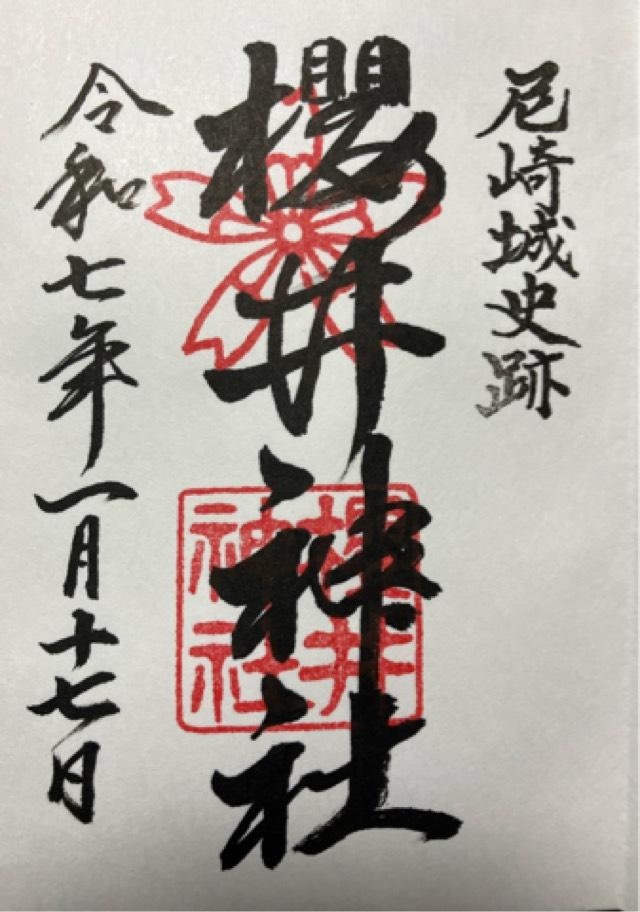 尼崎城史跡
櫻井神社
櫻井
神社
令和七年一月十七日